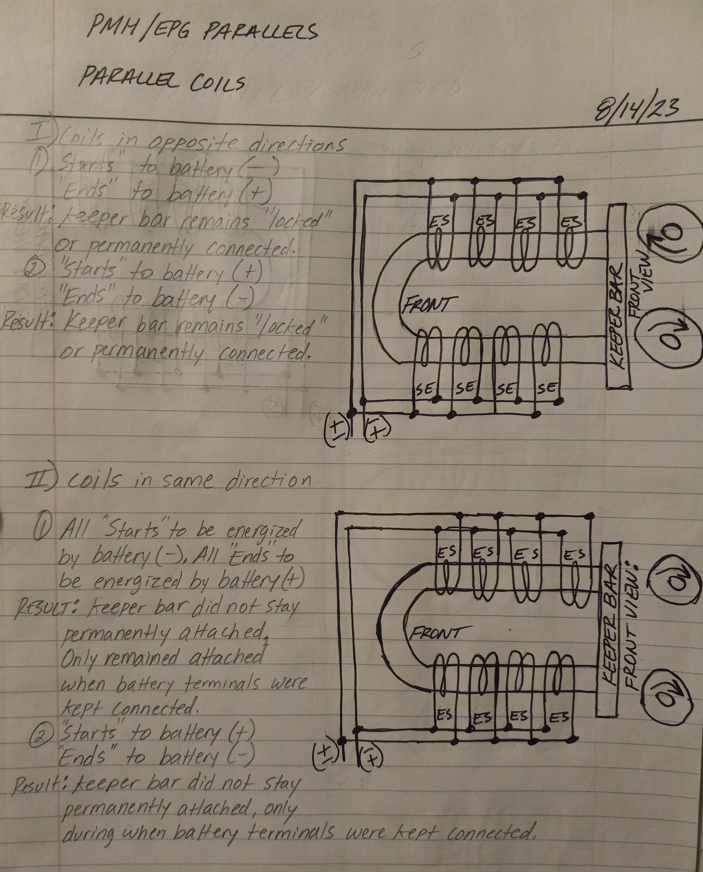 PMH/EPG PARALLELS
PARALLEL COILS
8/14/23
I) Coils in opposite directions
① "Starts" to battery (-)
"Ends" to battery (+)
Result: Keeper bar remains "locked"
or permanently connected.
② "Starts" to battery (+)
"Ends" to battery (-)
Result: Keeper bar remains "locked"
or permanently connected.
ES ES ES ES
FRONT
SE SE SE SE
(±) (∓)
KEEPER BAR
FRONT VIEW
II) Coils in same direction
① All "Starts" to be energized
by battery (-), All "Ends" to
be energized by battery (+)
RESULT: Keeper bar did not stay
permanently attached,
Only remained attached
when battery terminals were
kept connected.
② "Starts" to battery (+)
"Ends" to battery (-)
Result: Keeper bar did not stay
permanently attached, only
during when battery terminals were kept connected.
ES ES ES ES
FRONT
ES ES ES ES
(±) (∓)
KEEPER BAR
FRONT VIEW: